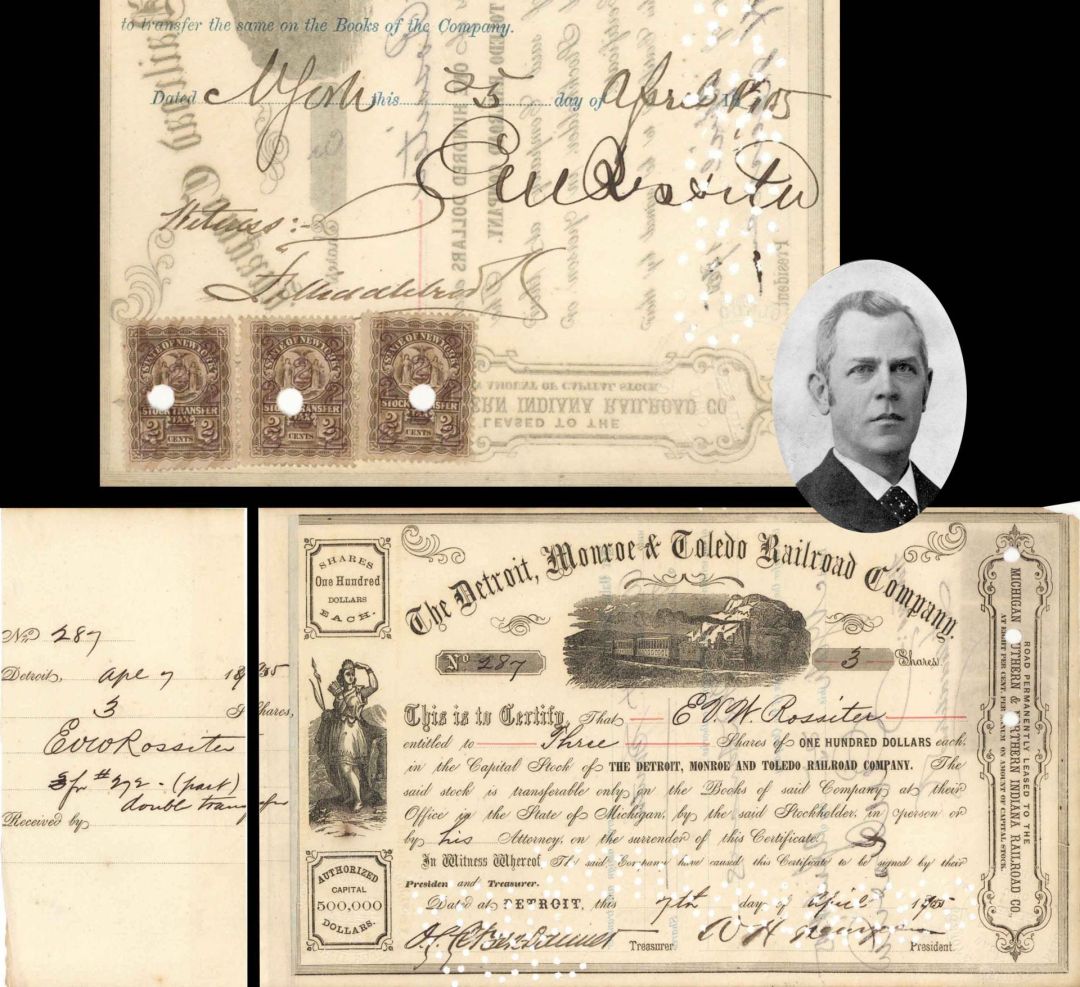 to transfer the same on the Books of the Company.
Dated N York this 25 day of April 1905
E V W Rossiter
Witness:-
STATE OF NEW YORK
STOCK TRANSFER
TAX
2 CENTS 2
STATE OF NEW YORK
STOCK TRANSFER
TAX
2 CENTS 2
STATE OF NEW YORK
STOCK TRANSFER
TAX
2 CENTS 2
AMOUNT OF CAPITAL STOCK
ERN INDIANA RAILROAD CO.
LEASED TO THE
TOLEDO RAILROAD COMPANY.
HUNDRED DOLLARS
President
No 287
Detroit, Apl 7 1905
3 Shares,
E V W Rossiter
3 fr #272 - (part)
double transfer
Received by
SHARES
One Hundred
DOLLARS
EACH.
The Detroit, Monroe & Toledo Railroad Company.
No 287
3 Shares
This is to Certify, That E. V. W. Rossiter
entitled to Three Shares of ONE HUNDRED DOLLARS each.
in the Capital Stock of THE DETROIT, MONROE AND TOLEDO RAILROAD COMPANY. The
said stock is transferable only on the Books of said Company at their
Office in the State of Michigan, by the said Stockholder, in person or
by his Attorney, on the surrender of this Certificate.
In Witness Whereof The said Company have caused this Certificate to be signed by their
President and Treasurer.
Dated at DETROIT, this 7th day of April 1905
Treasurer
President.
AUTHORIZED
CAPITAL
500,000
DOLLARS.
ROAD PERMANENTLY LEASED TO THE
MICHIGAN SOUTHERN & NORTHERN INDIANA RAILROAD CO.
AT EIGHT PER CENT. PER ANNUM ON AMOUNT OF CAPITAL STOCK.